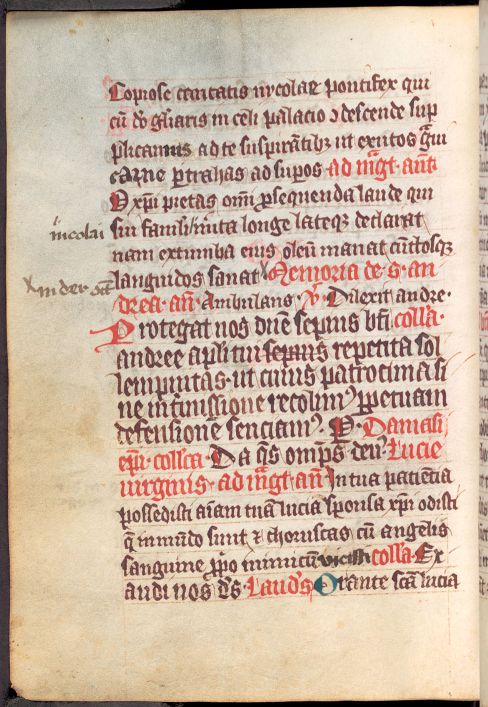 Copiose caritatis nycolae pontifex qui
cū dō gl̄iaris in celi palacio ↄdescende sup
plicantib ad te suspirātibꝫ ut exutos g̃ui
carne ꝑtrahas ad supos · ad mḡt · ant̄
O xp̄i pietas omī ꝓsequenda laude qui
sui famli mīta longe lateqꝫ declarat
nam ex tumba eius oleū manat cūctosqꝫ
languidos sanat Memoria de · s · an
drea · an̄ · Ambulans · v̄ · Dilexit andre ·
Protegat nos dn̄e sepius bt̄i colla ·
andree apl̄i tui sepius repetita sol
lempnitas · ut cuius patrocinia si
ne intmissione recolimꝰ ꝑpetuam
defensione senciamꝰ · Damasi
ep̄i · coll̄ca · Da q̄s omp̄s deuˢ Lucie
uirginis · ad mḡt · an̄ In tua patiētia
possedisti aīam tuā lucia sponsa xp̄i odisti
q̄ in mūdo sunt ⁊ choruscas cū angelis
sanguine ꝓpo inimicū vicisti colla · Ex
audi nos d̄s · Laud̄s Orante scā lucia
nicolai
in der